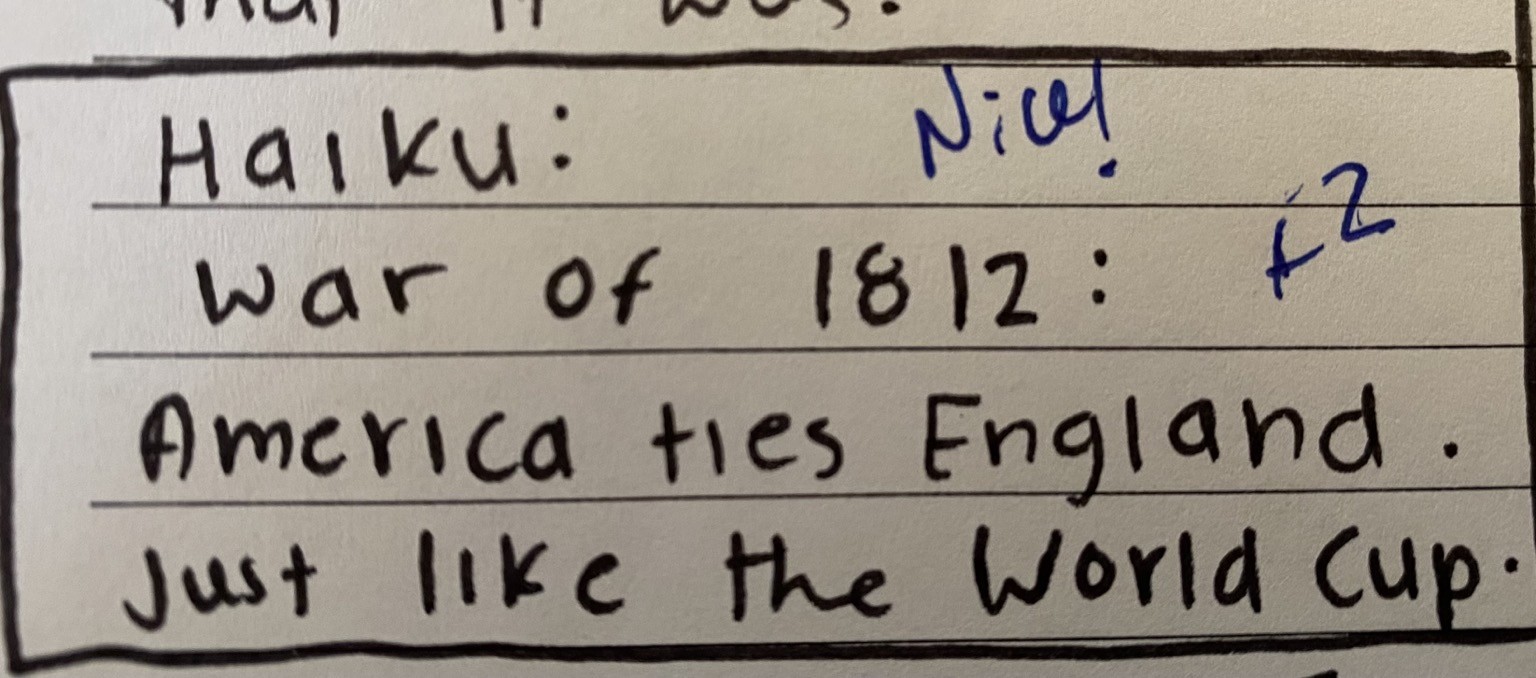 that it was.
Haiku: Nice!
War of 1812: +2
America ties England.
Just like the World Cup.